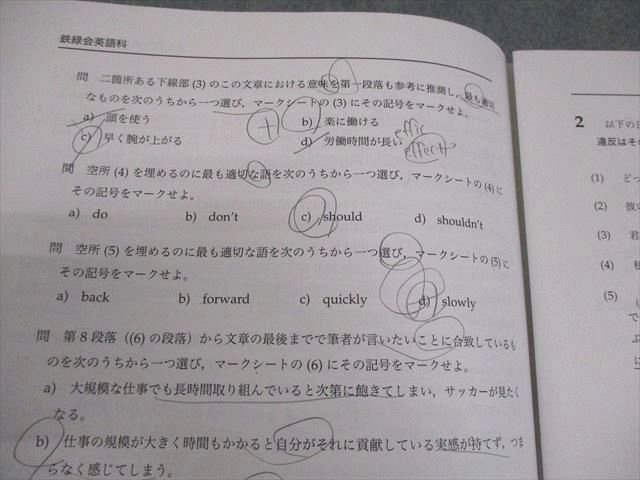 鉄緑会英語科
問 二箇所ある下線部 (3) のこの文章における意味を第一段落も参考に推測し，最も適切
なものを次のうちから一つ選び，マークシートの (3) にその記号をマークせよ。
a) 頭を使う b) 楽に働ける
effic
c) 早く腕が上がる d) 労働時間が長い
effect
問 空所 (4) を埋めるのに最も適切な語を次のうちから一つ選び，マークシートの (4) に
その記号をマークせよ。
a) do b) don't c) should d) shouldn't
問 空所 (5) を埋めるのに最も適切な語を次のうちから一つ選び，マークシートの (5) に
その記号をマークせよ。
a) back b) forward c) quickly d) slowly
問 第 8 段落 ((6) の段落) から文章の最後までで筆者が言いたいことに合致しているも
のを次のうちから一つ選び，マークシートの (6) にその記号をマークせよ。
a) 大規模な仕事でも長時間取り組んでいると次第に飽きてしまい，サッカーが見たく
なる。
b) 仕事の規模が大きく時間もかかると自分がそれに貢献している実感が持てず，つま
らなく感じてしまう。
2 以下の
違反はそ
(1) どっ
(2) 彼の
(3) 君
(4)
(5)
で